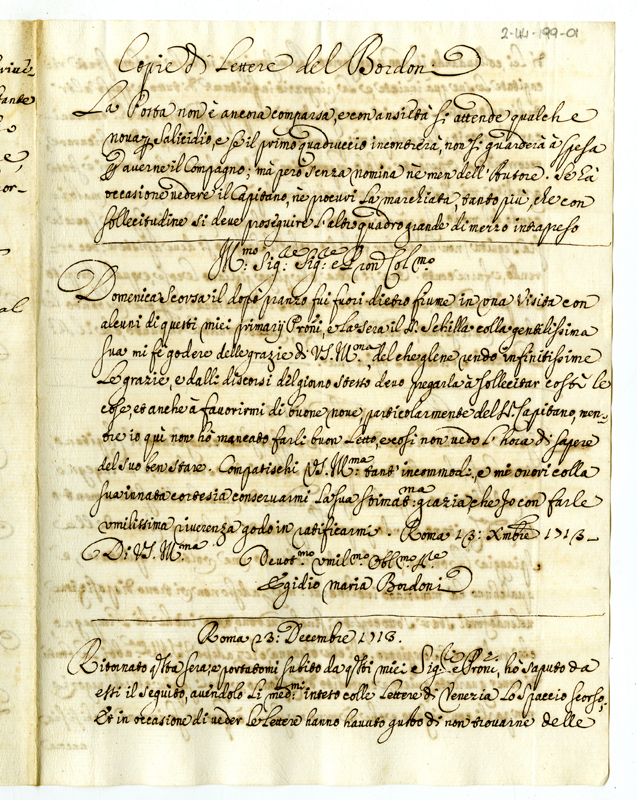 2-44-199-01
Copie di Lettere del Bordon:
La Posta non è ancora comparsa, e con ansietà si attende qualche
nova, e se il primo quadruccio incontrerà, non si guarderà à spesa
averne il Compagno; mà però senza nomina nè men dell'Autore. Se hà
occasione vedere il Capitano, nè procuri la marchiata, tanto più, che con
sollecitudine si deve proseguire l'altro quadro grande di mezzo intrapeso
Ill:mo Sig:re Sig:re e Pron Col:mo
Domenica Scorsa il dopò pranzo fui fuori dietro fiume in una Visita con
alcuni di questi miei primarij Proñi, e la sera il S: Sebilla colla gentilissima
sua mi fè godere delle grazie di VS. Ill:ma, del che glene rendo infinitissime
Le grazie, e dalli discorsi del giorno stesso devo pregarla à sollecitar costì le
cose, et anche à favorirmi di buone nove, particolarmente del S: Capitano, men-
tre io quì non hò mancato farli buon Letto, e così non vedo l'hora di sapere
del suo ben stare. Compatischi VS. Ill:ma tant' incommodi, e mi onori colla
sua innata cortesia conservarmi la sua stimat:ma grazia che Io con farle
umilissima riverenza godo in ratificarmi. Roma 13: Xmbre 1713
Di VS. Ill:ma
Devot:mo umil:mo Obl:mo S:re
Egidio Maria Bordoni
Roma 23: Decembre 1713.
Ritornato q:sta sera, e portatomi subito da q:sti miei Sig:ri e Proñi, hò saputo da
essi il seguito, avendolo li med:mi inteso colle Lettere di Venezia lo spaccio scorso,
Et in occasione di veder le Lettere hanno havuto gusto di non trovarne delle